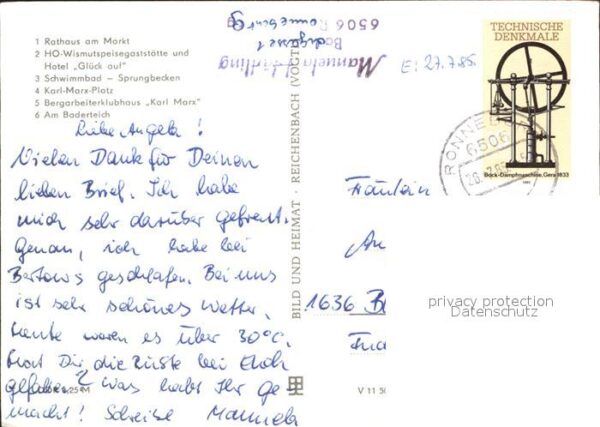 1 Rathaus am Markt
2 HO-Wismutspeisegaststätte und
Hotel „Glück auf“
3 Schwimmbad – Sprungbecken
4 Karl-Marx-Platz
5 Bergarbeiterklubhaus „Karl Marx“
6 Am Baderteich
Liebe Angela!
Vielen Dank für Deinen
lieben Brief. Ich habe
mich sehr darüber gefreut.
Genau, ich habe bei
Bertows geschlafen. Bei uns
ist sehr schönes Wetter.
Heute waren es über 30°C.
Hat Dir die Küste bei Euch
gefallen? Was habt Ihr ge
macht! Schreibe Manuela
BILD UND HEIMAT · REICHENBACH (VOGTL
V 11 50
Manuela
Badergasse 1
6506 Ronneburg
E: 27.7.85.
TECHNISCHE
DENKMALE
Bock-Dampfmaschine, Gera 1833
RONNEB
6506
Fräulein
An
1636 B
privacy protection
Datenschutz